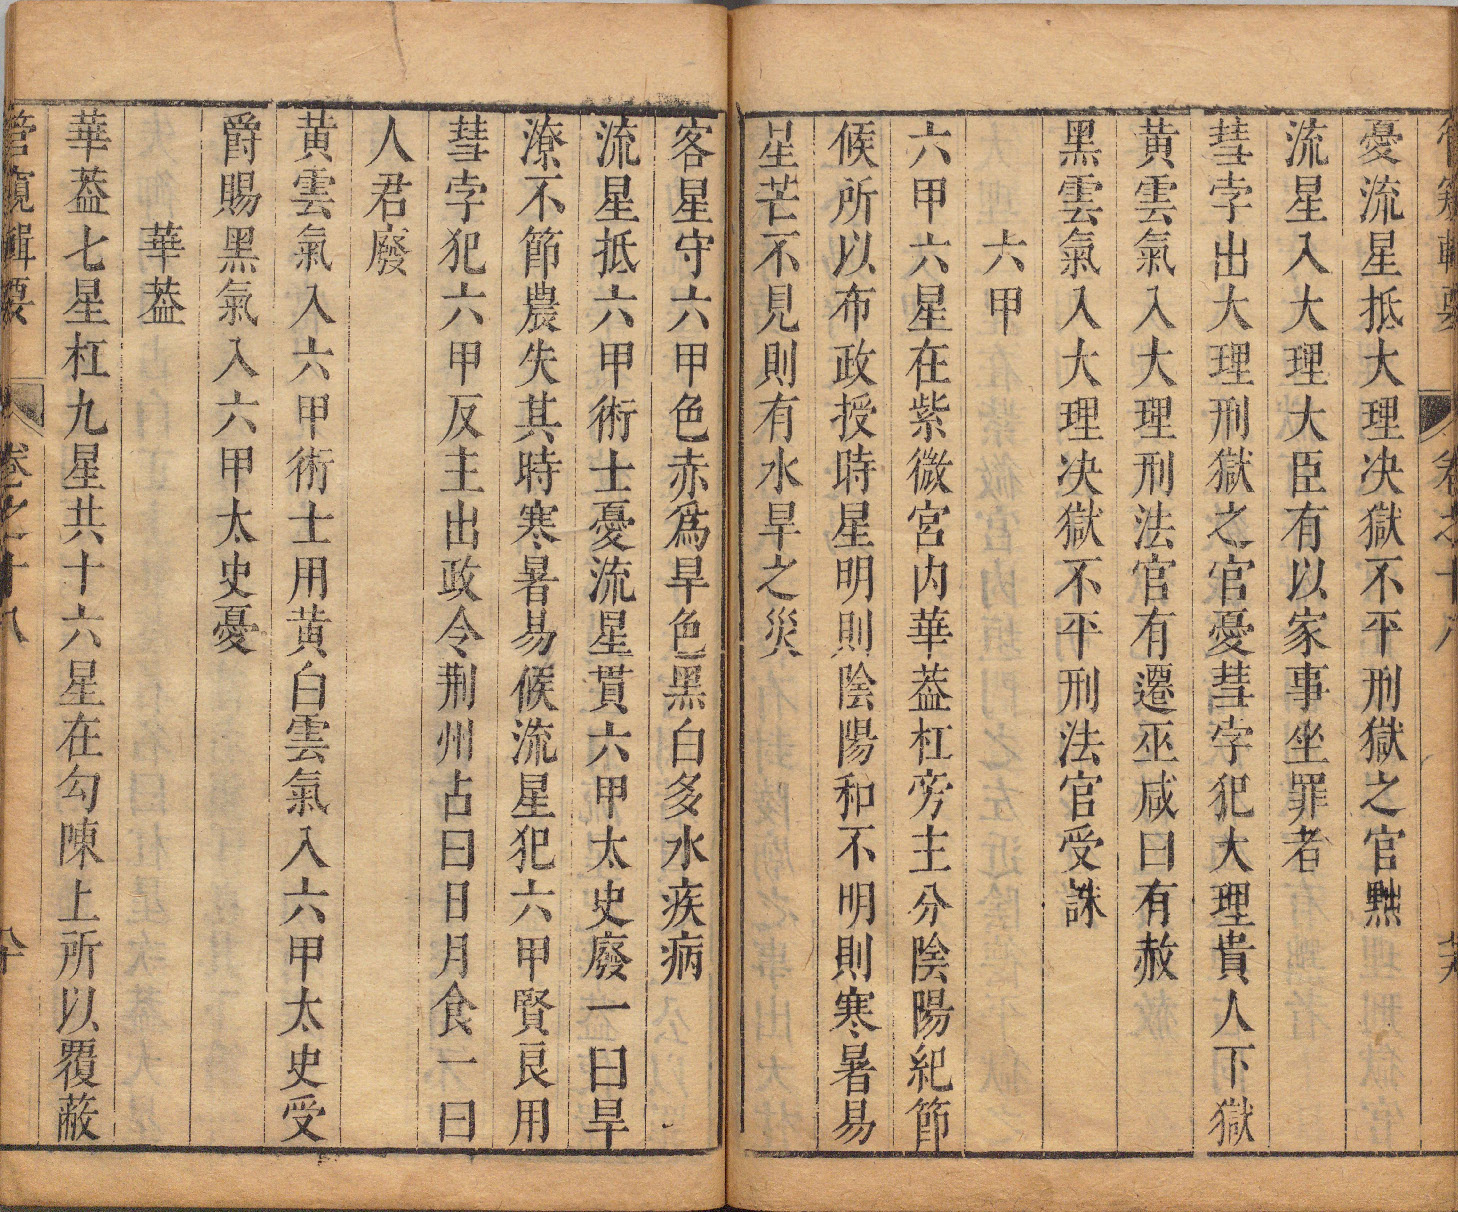 管窺輯要 卷之十八
憂流星抵大理决獄不平刑獄之官黜
流星入大理大臣有以家事坐罪者
彗孛出大理刑獄之官憂彗孛犯大理貴人下獄
黃雲氣入大理刑法官有遷巫咸曰有赦
黑雲氣入大理决獄不平刑法官受誅
六甲
六甲六星在紫微宮内華葢杠旁主分陰陽紀節
候所以布政授時星明則陰陽和不明則寒暑易
星芒不見則有水旱之災
客星守六甲色赤爲旱色黑白多水疾病
流星抵六甲術士憂流星貫六甲太史廢一曰旱
潦不節農失其時寒暑易候流星犯六甲賢良用
彗孛犯六甲反主出政令荆州占曰日月食一曰
人君廢
黃雲氣入六甲術士用黃白雲氣入六甲太史受
爵賜黑氣入六甲太史憂
華葢
華葢七星杠九星共十六星在勾陳上所以覆蔽
管窺輯要 卷之十八